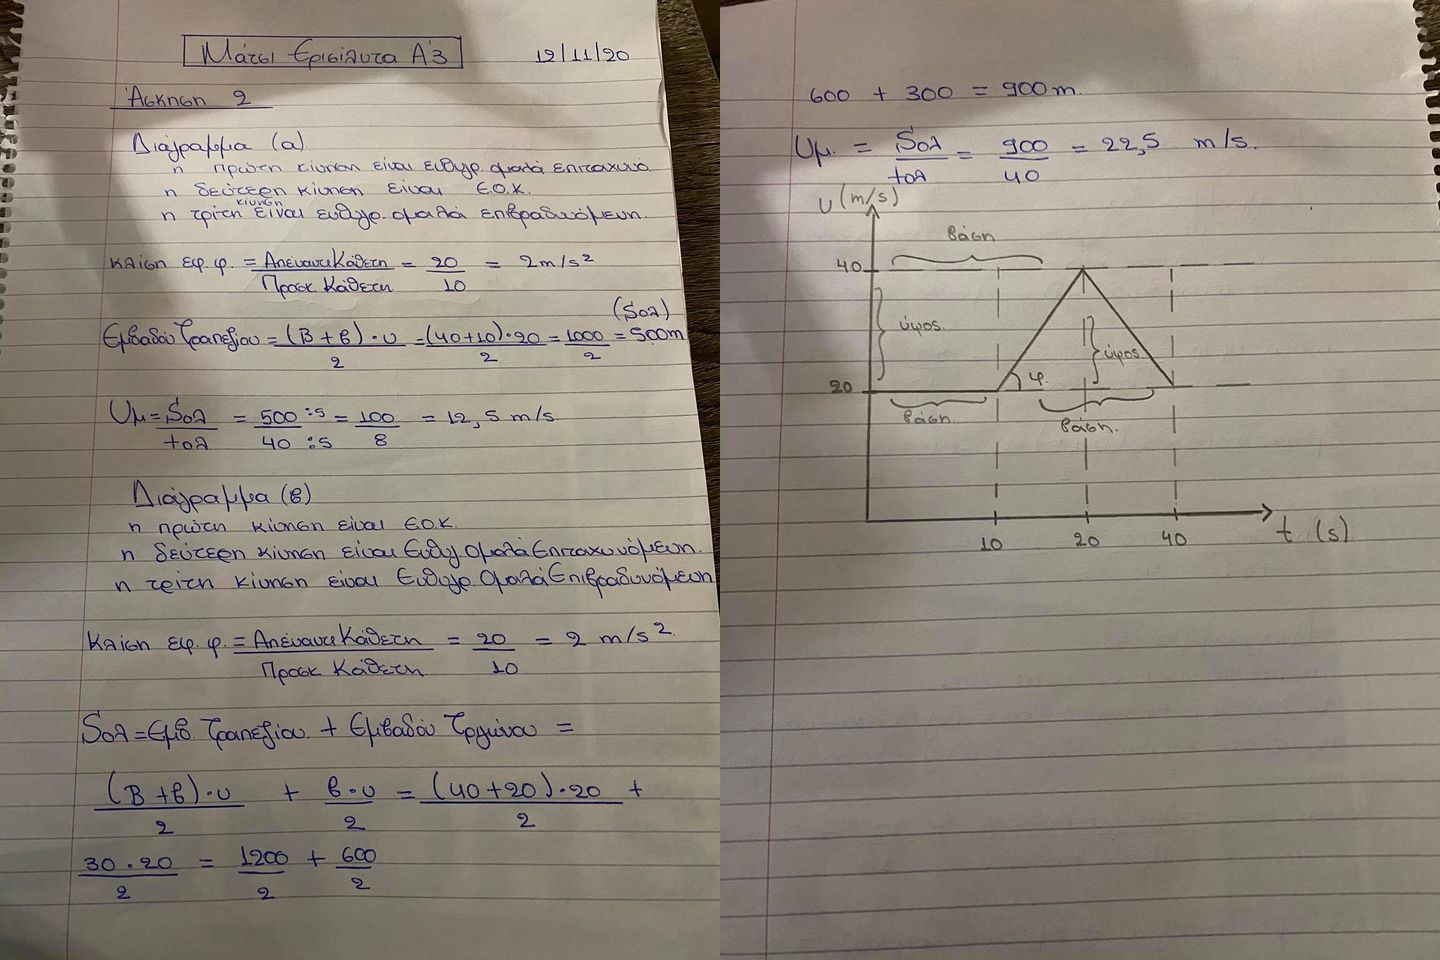 Μάτσι Ερισίλντα Α'3 12/11/20
Άσκηση 2
Διάγραμμα (α)
η πρώτη κίνηση είναι ευθυγρ. ομαλά επιταχυνό.
η δεύτερη κίνηση είναι Ε.Ο.Κ.
κίνηση
η τρίτη είναι ευθυγρ. ομαλά επιβραδυνόμενη.
κλίση εφ. φ. = Απέναντι Κάθετη / Προσκ Κάθετη = 20 / 10 = 2 m/s²
(Sολ)
Εμβαδόν Τραπεζίου = (Β + β) · υ / 2 = (40+10) · 20 / 2 = 1000 / 2 = 500m
Uμ = Sολ / tολ = 500 :5 / 40 :5 = 100 / 8 = 12,5 m/s.
Διάγραμμα (β)
η πρώτη κίνηση είναι Ε.Ο.Κ.
η δεύτερη κίνηση είναι Ευθυγ Ομαλά Επιταχυνόμενη.
η τρίτη κίνηση είναι Ευθυγρ Ομαλά Επιβραδυνόμενη
Κλίση εφ. φ. = Απέναντι Κάθετη / Προσκ Κάθετη = 20 / 10 = 2 m/s².
Sολ = Εμβ Τραπεζίου + Εμβαδόν Τργώνου =
(Β + β) · υ / 2 + β · υ / 2 = (40 + 20) · 20 / 2 +
30 · 20 / 2 = 1200 / 2 + 600 / 2
600 + 300 = 900 m.
Uμ. = Sολ / tολ = 900 / 40 = 22,5 m/s.
U (m/s)
βάση
40
ύψος.
ύψος
20
φ.
βάση.
βάση.
10 20 40
t (s)